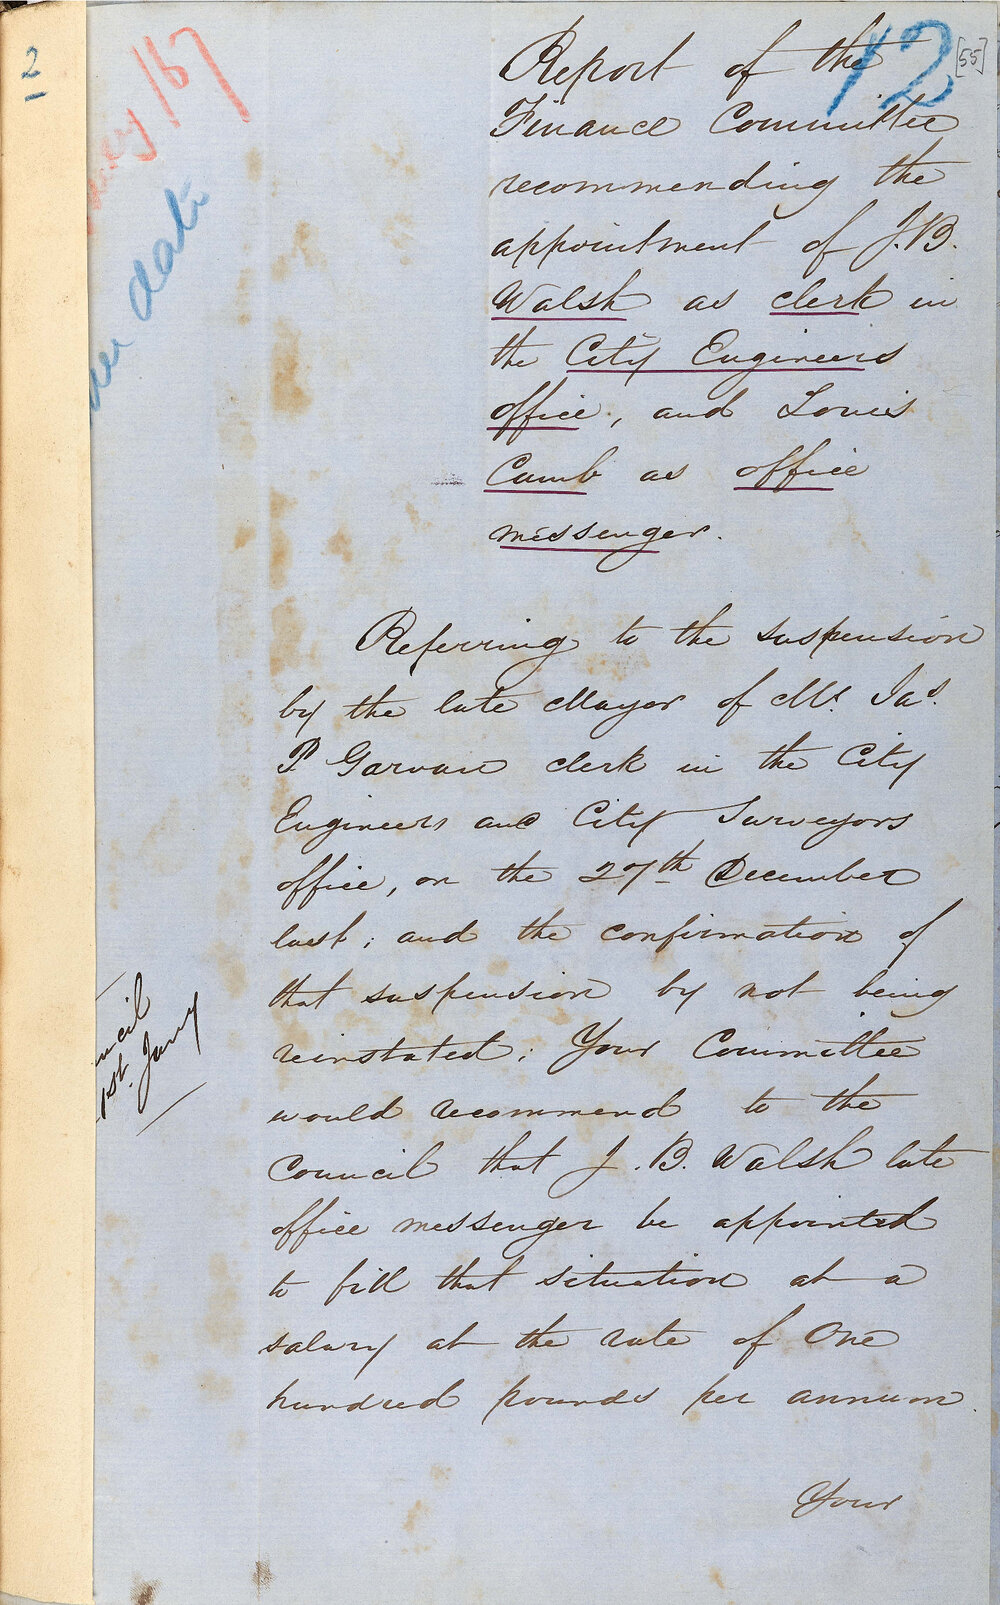 2
167
12
[55]
date
Report of the
Finance Committee
recommending the
appointment of J.B.
Walsh as clerk in
the City Engineers
office, and Louis
Camb as office
messenger.
Referring to the suspension
by the late Mayor of Mr. Jas.
P Garvan clerk in the City
Engineers and City Surveyors
office, on the 27th December
last; and the confirmation of
that suspension by not being
reinstated; Your Committee
would recommend to the
Council that J.B. Walsh late
office messenger be appointed
to fill that situation at a
salary at the rate of One
hundred pounds per annum.
uncil
1st. Jany
Your